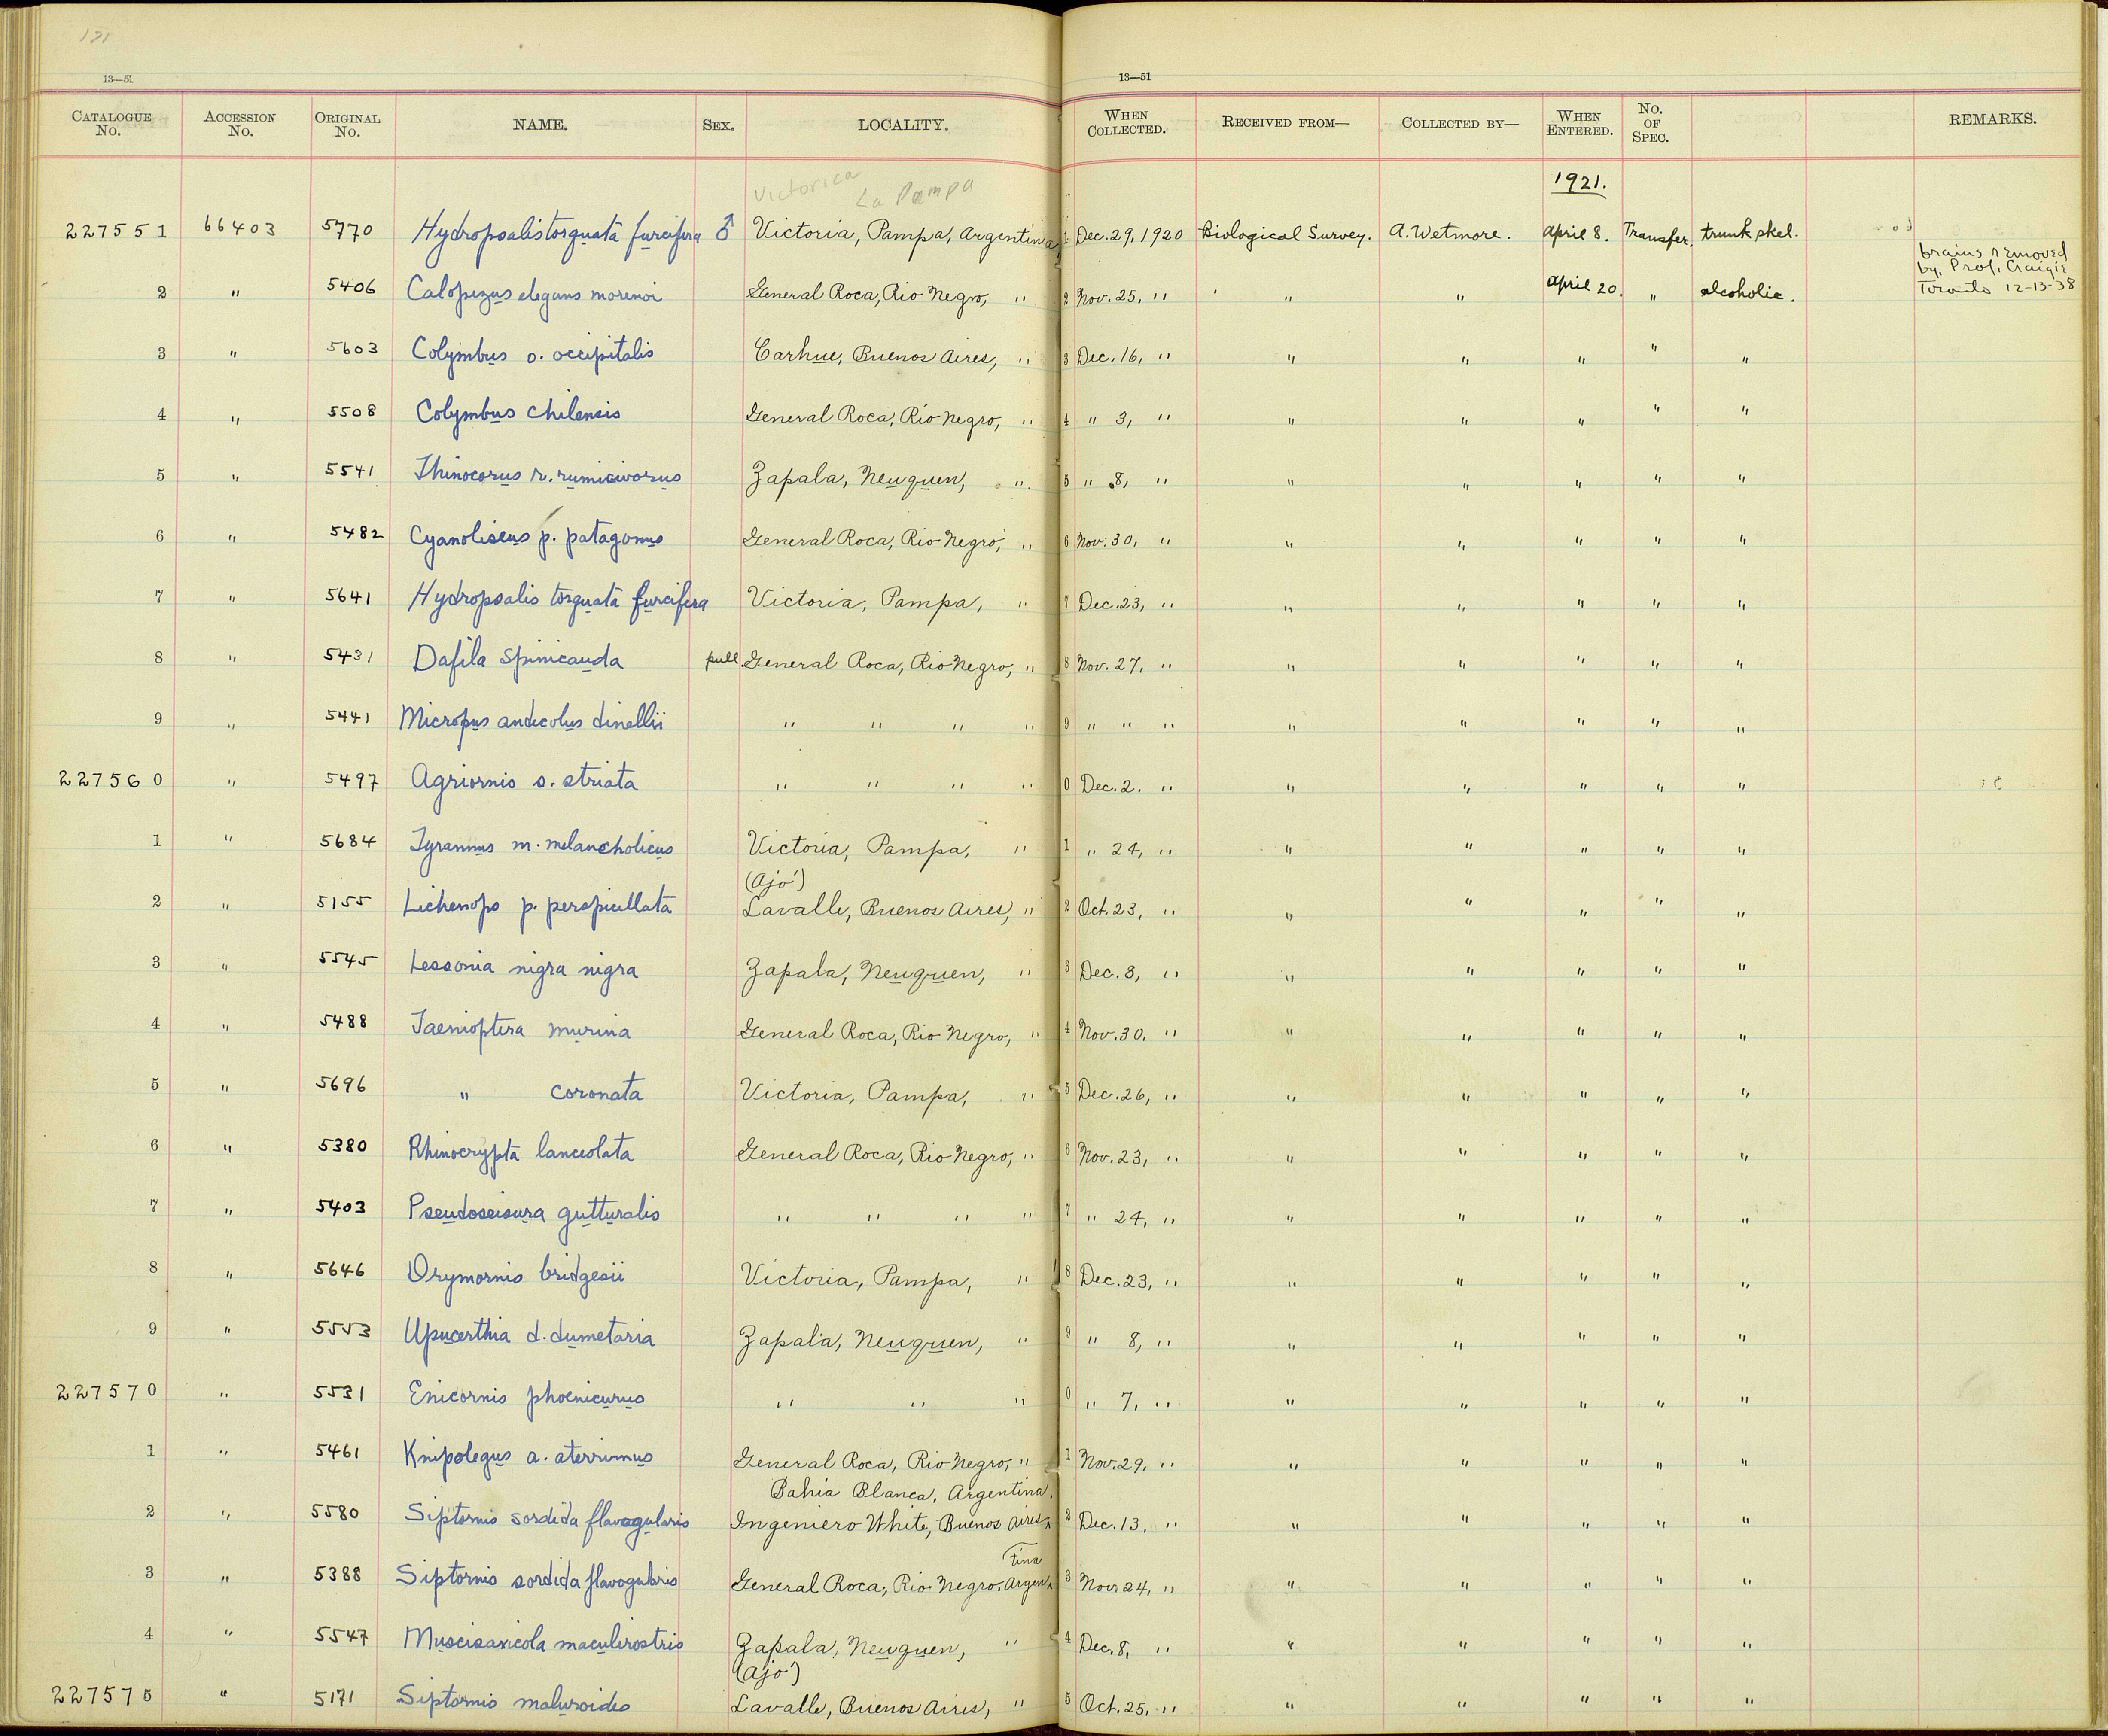 121
13—51
13—51
CATALOGUE No. ACCESSION No. ORIGINAL No. NAME. SEX. LOCALITY. WHEN COLLECTED. RECEIVED FROM— COLLECTED BY— WHEN ENTERED. NO. OF SPEC. REMARKS.
Victorica La Pampa
1921.
227551 66403 5770 Hydropsalis torquata furcifera ♂ Victoria, Pampa, Argentina 1 Dec. 29, 1920 Biological Survey. A. Wetmore. April 8. Transfer. trunk skel.
brains removed
by Prof. Craigie
Toronto 12-13-38
2 " 5406 Calopezus elegans morenoi General Roca, Rio Negro, " 2 Nov. 25, " " " April 20. " alcoholic.
3 " 5603 Colymbus o. occipitalis Carhue, Buenos Aires, " 3 Dec. 16, " " " " " "
4 " 5508 Colymbus chilensis General Roca, Rio Negro, " 4 " 3, " " " " " "
5 " 5541 Thinocorus r. rumicivorus Zapala, Neuquen, " 5 " 8, " " " " " "
6 " 5482 Cyanoliseus p. patagonus General Roca, Rio Negro, " 6 Nov. 30, " " " " " "
7 " 5641 Hydropsalis torquata furcifera Victoria, Pampa, " 7 Dec. 23, " " " " " "
8 " 5431 Dafila spinicauda pull General Roca, Rio Negro, " 8 Nov. 27, " " " " " "
9 " 5441 Micropus andecolus dinellii " " " " 9 " " " " " " " "
227560 " 5497 Agriornis s. striata " " " " 0 Dec. 2. " " " " " "
1 " 5684 Tyrannus m. melancholicus Victoria, Pampa, " 1 " 24, " " " " " "
(Ajó)
2 " 5155 Lichenops p. perspicillata Lavalle, Buenos Aires, " 2 Oct. 23, " " " " " "
3 " 5545 Lessonia nigra nigra Zapala, Neuquen, " 3 Dec. 8, " " " " " "
4 " 5488 Taenioptera murina General Roca, Rio Negro, " 4 Nov. 30. " " " " " "
5 " 5696 " coronata Victoria, Pampa, " 5 Dec. 26, " " " " " "
6 " 5380 Rhinocrypta lanceolata General Roca, Rio Negro, " 6 Nov. 23, " " " " " "
7 " 5403 Pseudoseisura gutturalis " " " " 7 " 24, " " " " " "
8 " 5646 Drymornis bridgesii Victoria, Pampa, " 8 Dec. 23, " " " " " "
9 " 5553 Upucerthia d. dumetaria Zapala, Neuquen, " 9 " 8, " " " " " "
227570 " 5531 Enicornis phoenicurus " " " 0 " 7, " " " " " "
1 " 5461 Knipolegus a. aterrimus General Roca, Rio Negro, " 1 Nov. 29, " " " " " "
Bahia Blanca, Argentina.
2 " 5580 Siptornis sordida flavogularis Ingeniero White, Buenos Aires, 2 Dec. 13, " " " " " "
tina
3 " 5388 Siptornis sordida flavogularis General Roca, Rio Negro, Argen 3 Nov. 24, " " " " " "
4 " 5547 Muscisaxicola maculirostris Zapala, Neuquen, " 4 Dec. 8, " " " " " "
(Ajó)
227575 " 5171 Siptornis maluroides Lavalle, Buenos Aires, " 5 Oct. 25, " " " " " "